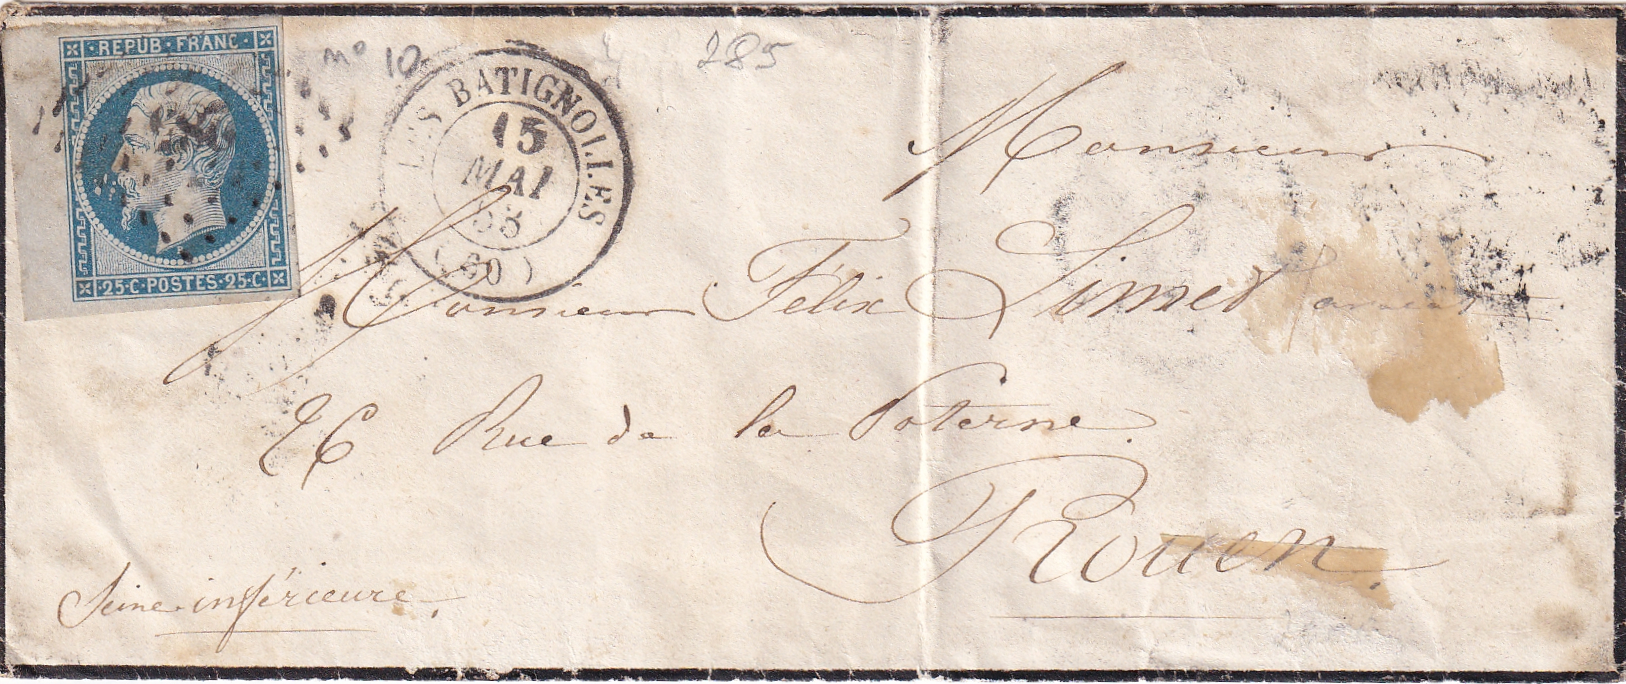 REPUB·FRANC·
·25·C·POSTES·25·C·
n° 10
285
LES BATIGNOLLES
15
MAI
53
(60)
Monsieur
Monsieur Félix Simet
26 Rue de la Poterne.
Rouen.
Seine-inférieure.